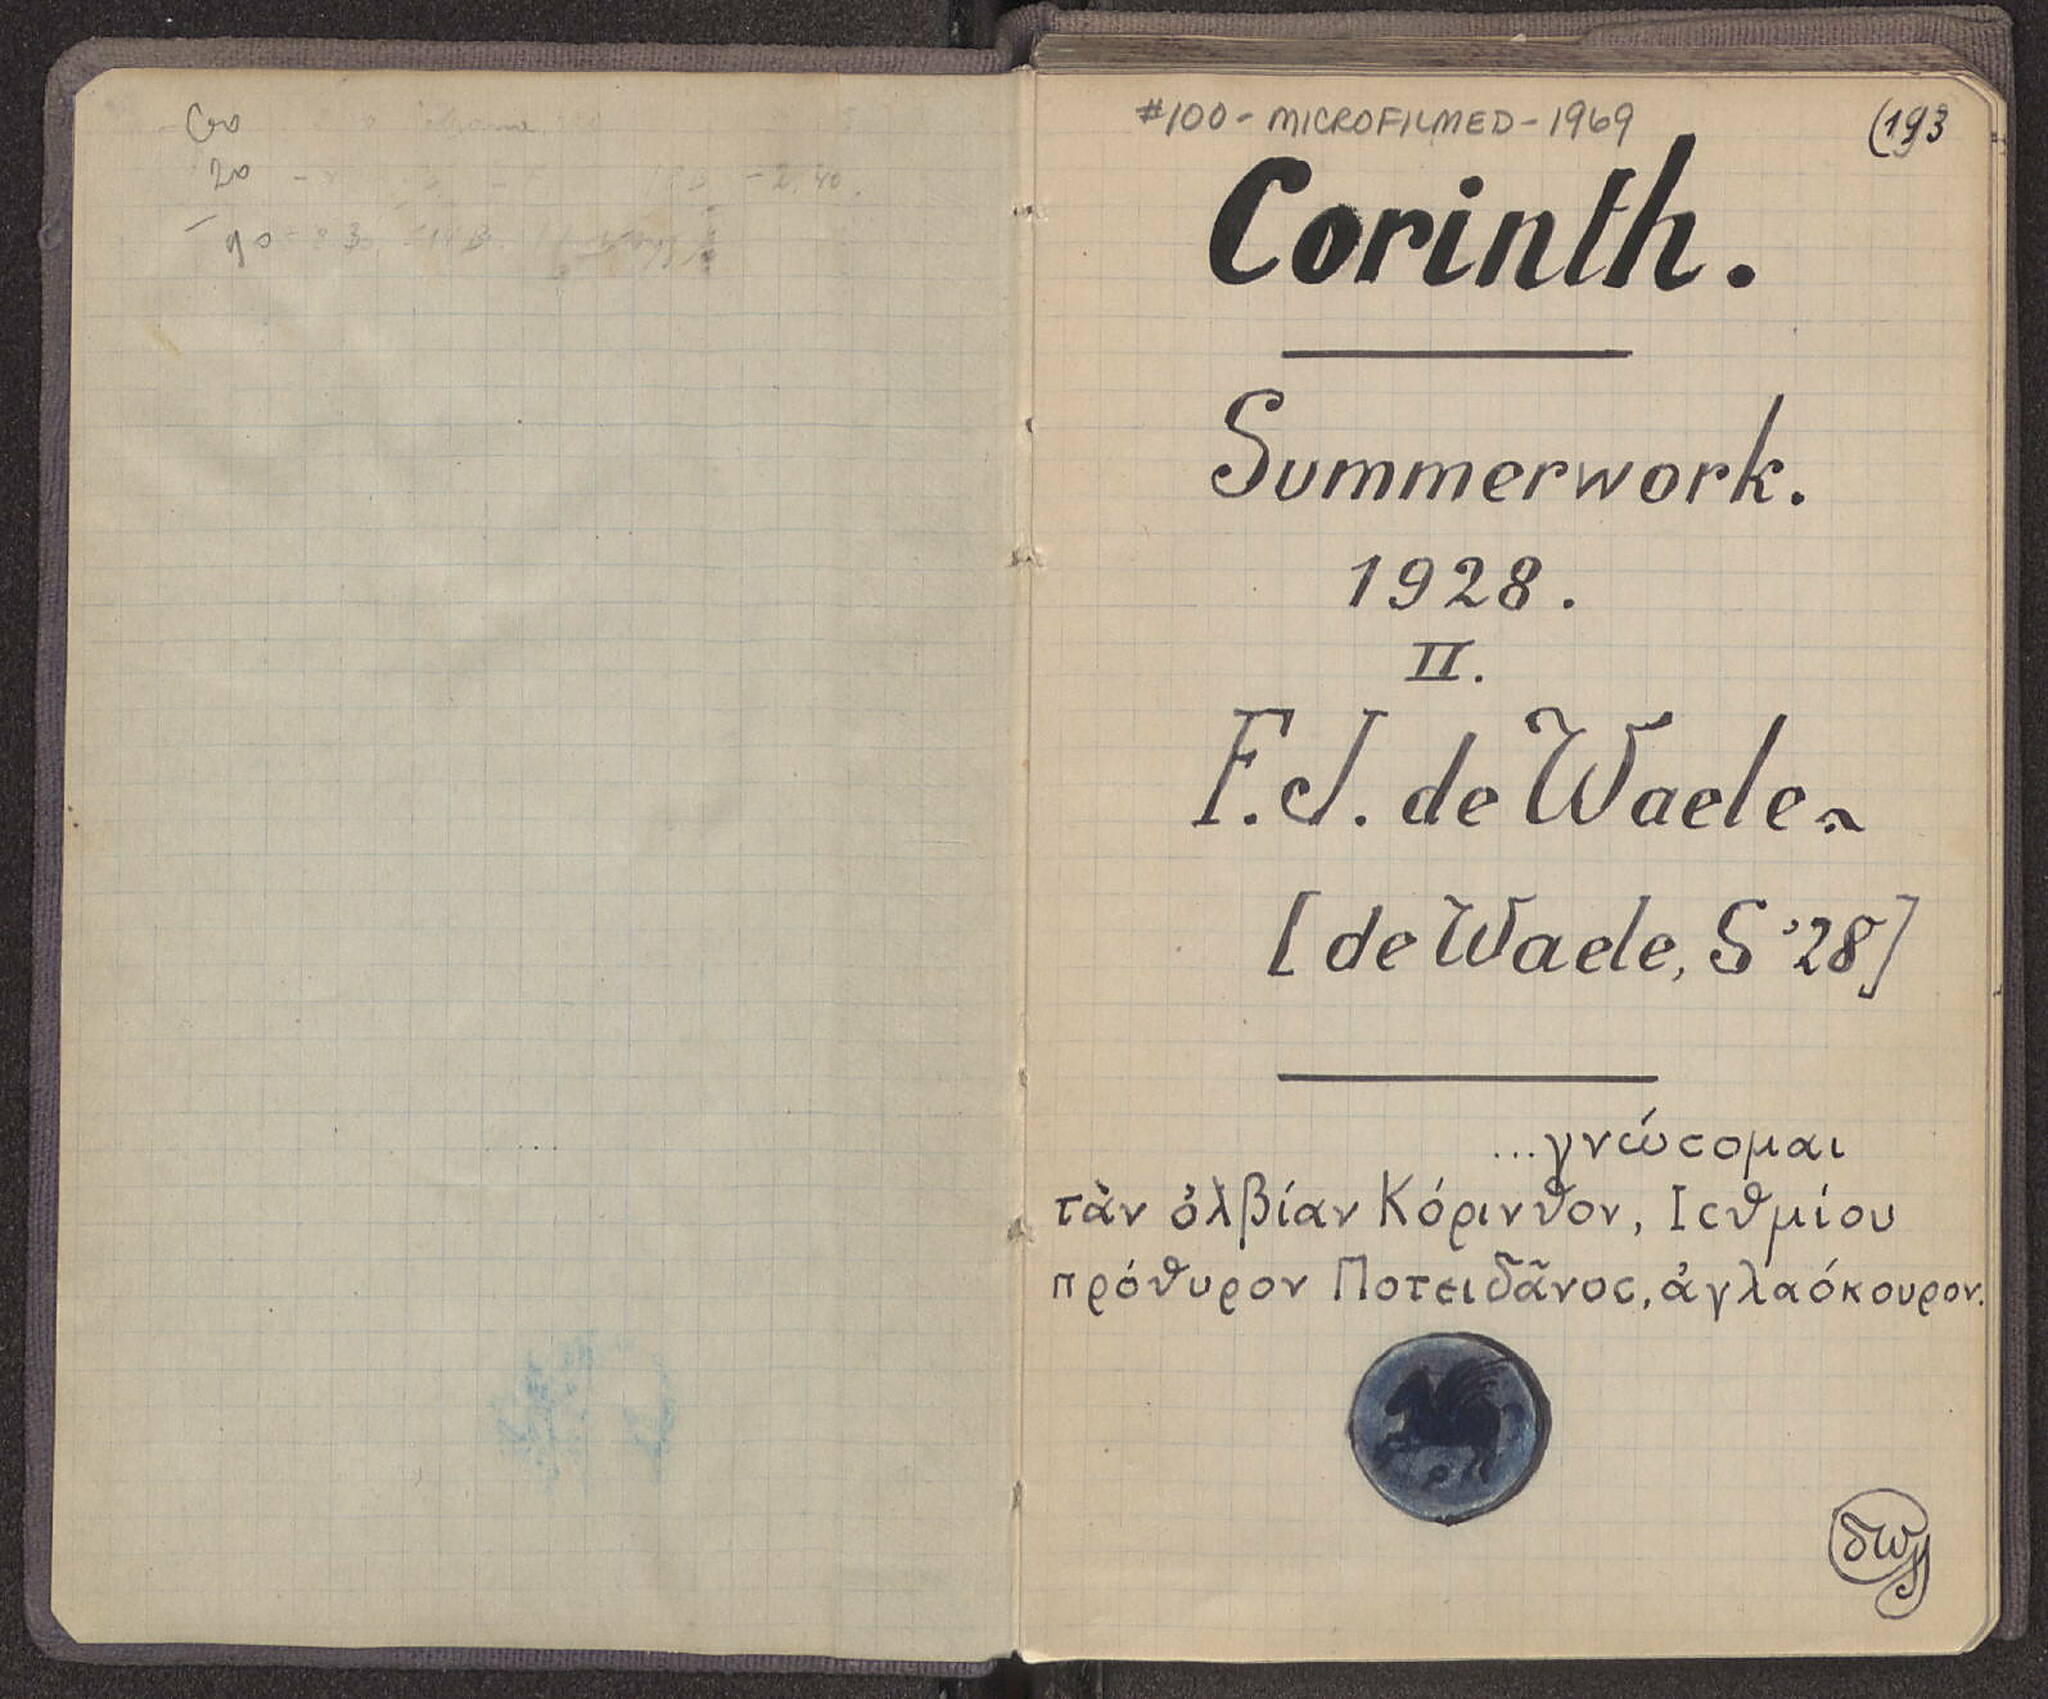 20
- 2.40.
#100 - MICROFILMED - 1969
(193
Corinth.
Summerwork.
1928.
II.
F. J. de Waele.
[de Waele, S '28]
...γνώσομαι
τὰν ὀλβίαν Κόρινθον, Ισθμίου
πρόθυρον Ποτειδᾶνος, ἀγλαόκουρον.